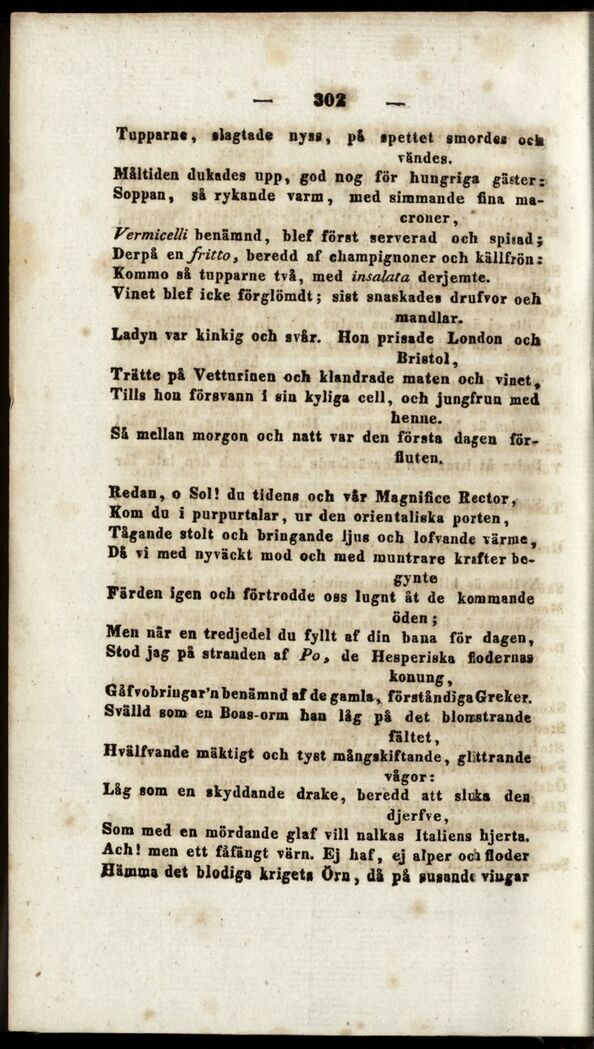 — 302 —
Tupparne, slagtade nyss, på spettet smordes och
vändes.
Måltiden dukades upp, god nog för hungriga gäster:
Soppan, så rykande varm, med simmande fina ma-
croner,
Vermicelli benämnd, blef först serverad och spisad;
Derpå en fritto, beredd af champignoner och källfrön:
Kommo så tupparne två, med insalata derjemte.
Vinet blef icke förglömdt; sist snaskades drufvor och
mandlar.
Ladyn var kinkig och svår. Hon prisade London och
Bristol,
Trätte på Vetturinen och klandrade maten och vinet,
Tills hon försvann i sin kyliga cell, och jungfrun med
henne.
Så mellan morgon och natt var den första dagen för-
fluten.
Redan, o Sol! du tidens och vår Magnifice Rector,
Kom du i purpurtalar, ur den orientaliska porten,
Tågande stolt och bringande ljus och lofvande värme,
Då vi med nyväckt mod och med muntrare krafter be-
gynte
Färden igen och förtrodde oss lugnt åt de kommande
öden;
Men när en tredjedel du fyllt af din bana för dagen,
Stod jag på stranden af Po, de Hesperiska flodernas
konung,
Gåfvobringar'n benämnd af de gamla, förståndiga Greker.
Svälld som en Boas-orm han låg på det blomstrande
fältet,
Hvälfvande mäktigt och tyst mångskiftande, glittrande
vågor:
Låg som en skyddande drake, beredd att sluka den
djerfve,
Som med en mördande glaf vill nalkas Italiens hjerta.
Ach! men ett fåfängt värn. Ej haf, ej alper och floder
Hämma det blodiga krigets Örn, då på susande vingar